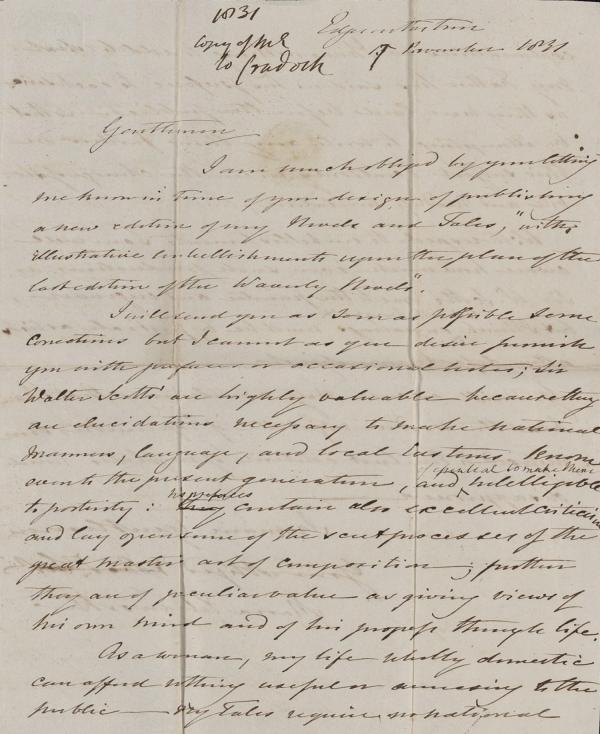 1831
copy of
to Cradock
Edgeworthstown
November 1831
Gentlemen
I am much obliged by your letting
me know in time of your design of publishing
a new edition of my Novels and Tales, "with
illustrative Embellishments upon the plan of the
last edition of the Waverly Novels".
I will send you as soon as possible some
corrections but I cannot as you desire furnish
you with prefaces or occasional notes; Sir
Walter Scotts' are highly valuable because they
are elucidations necessary to make national
manners, language, and local Customs known
even to the present generation, and intelligible
essential to make them
to posterity: they contain also excellent criticism
his prefaces
and lay open some of the secret processes of the
great masters art of composition; further
they are of peculiar value as giving views of
his own mind and of his progress through life.
As a woman, my life wholly domestic
can afford nothing useful or amusing to the
public — my Tales require no national